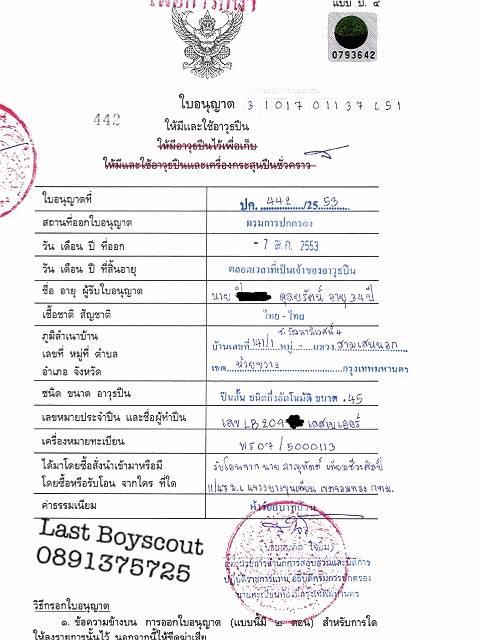 เพื่อการกีฬา
แบบ ป. ๔
0793642
ใบอนุญาต 3 1017 01137 651
442
ให้มีและใช้อาวุธปืน
ให้มีอาวุธปืนไว้เพื่อเก็บ
ให้มีและใช้อาวุธปืนและเครื่องกระสุนปืนชั่วคราว
ใบอนุญาตที่ ปค. 442 /25 53
สถานที่ออกใบอนุญาต กรมการปกครอง
วัน เดือน ปี ที่ออก - 7 ม.ค. 2553
วัน เดือน ปี ที่สิ้นอายุ ตลอดเวลาที่เป็นเจ้าของอาวุธปืน
ชื่อ อายุ ผู้รับใบอนุญาต นาย ดุลยรัตน์ อายุ 34 ปี
เชื้อชาติ สัญชาติ ไทย - ไทย
ภูมิลำเนาบ้าน
เลขที่ หมู่ที่ ตำบล บ้านเลขที่ 141/1 หมู่ - แขวง สามเสนนอก
อำเภอ จังหวัด เขต ห้วยขวาง กรุงเทพมหานคร
ชนิด ขนาด อาวุธปืน ปืนสั้น ชนิดกึ่งอัตโนมัติ ขนาด .45
เลขหมายประจำปืน และชื่อผู้ทำปืน เลข LB 209 เลสเบเออร์
เครื่องหมายทะเบียน พร 07 / 5000113
ได้มาโดยซื้อสั่งนำเข้ามาหรือมี รับโอนจาก นาย
โดยซื้อหรือรับโอน จากใคร ที่ใด แขวงบางขุนเทียน เขตจอมทอง กทม.
ค่าธรรมเนียม ห้าร้อยบาทถ้วน
Last Boyscout
0891375725
ผู้อำนวยการสำนักการสอบสวนและนิติการ
ปฏิบัติราชการแทน อธิบดีกรมการปกครอง
นายทะเบียนท้องที่กรุงเทพมหานคร
วิธีกรอกใบอนุญาต
๑. ข้อความข้างบน การออกใบอนุญาต (แบบนี้มี ๒ ตอน) สำหรับการใด
ให้ลงรายการนั้นไว้ นอกจากนี้ให้ขีดฆ่าเสีย